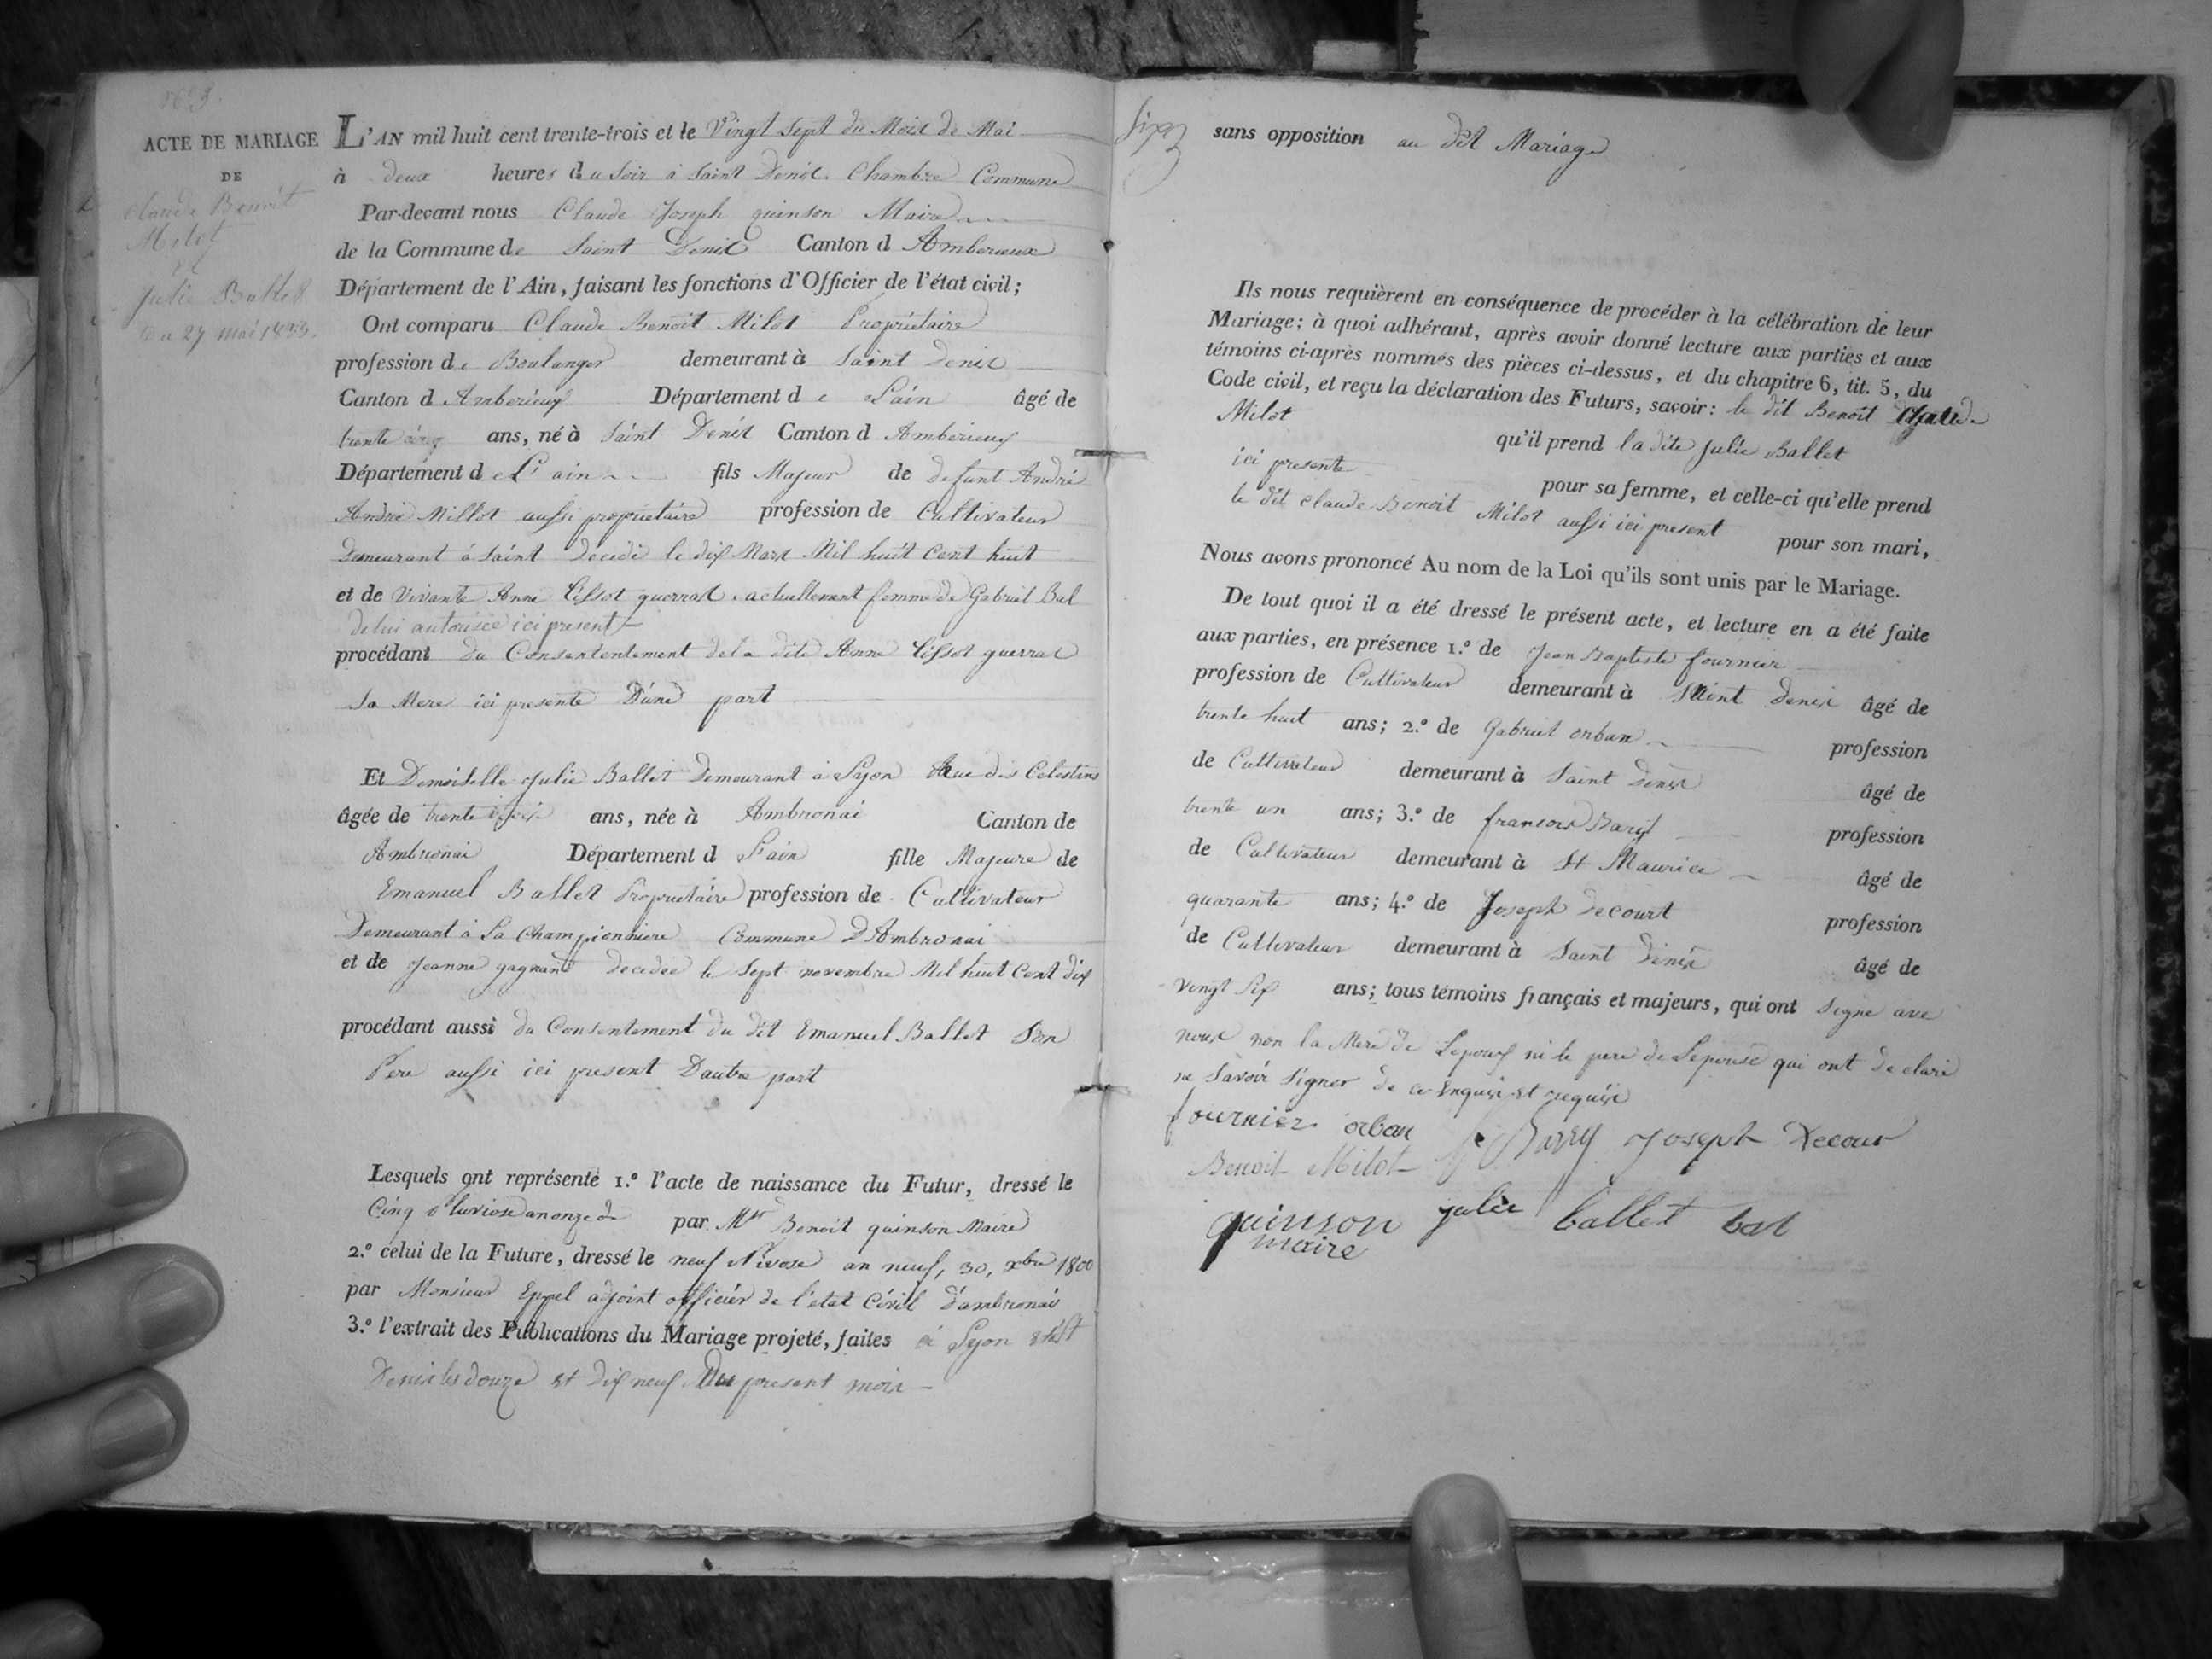 N° 3.
ACTE DE MARIAGE
DE
Claude Benoit
Milot
et
Julie Ballet
Du 27 mai 1833.
L'AN mil huit cent trente-trois et le Vingt Sept du Mois de Mai
à deux heures du Soir à Saint Denis Chambre Commune
Par-devant nous Claude Joseph quinson Maire
de la Commune de Saint Denis Canton d Amberieux
Département de l'Ain, faisant les fonctions d'Officier de l'état civil;
Ont comparu Claude Benoit Milot Propriétaire
profession de Boulanger demeurant à Saint Denis
Canton d Amberieux Département d e L'ain âgé de
trente cinq ans, né à Saint Denis Canton d Amberieux
Département d e L'ain fils Majeur de defunt André
André Millot aussi propriétaire profession de Cultivateur
Demeurant à Saint Decedé le dix Mars Mil huit Cent huit
et de Vivante Anne Tissot guerrat actuellement femme de Gabriel Bal
de lui autorisée ici present
procédant du Consententement de la dite Anne Tissot guerrat
Sa Mere ici presente D'une part
Et Demoiselle Julie Ballet Demeurant à Lyon Rue des Celestins
âgée de trente ans, née à Ambronai Canton de
Ambronai Département d L'ain fille Majeure de
Emanuel Ballet Propriétaire profession de Cultivateur
Demeurant à La Championniere Commune D'Ambronai
et de Jeanne gagnand decedée le Sept novembre Mil huit Cent dix
procédant aussi du Consentement du dit Emanuel Ballet Son
Pere aussi ici present Dautre part
Lesquels ont représenté 1.º l'acte de naissance du Futur, dressé le
Cinq Pluviose an onze par Mr Benoit quinson Maire
2.º celui de la Future, dressé le neuf Nivose an neuf, 30, xbre 1800
par Monsieur Eppel adjoint officier de l'etat Civil d'ambronai
3.º l'extrait des Publications du Mariage projeté, faites à Lyon & à St
Denis les douze et dix neuf Du present mois
Six
sans opposition au dit Mariage
Ils nous requièrent en conséquence de procéder à la célébration de leur
Mariage; à quoi adhérant, après avoir donné lecture aux parties et aux
témoins ci-après nommés des pièces ci-dessus, et du chapitre 6, tit. 5, du
Code civil, et reçu la déclaration des Futurs, savoir: le dit Benoit Claude
Milot qu'il prend la dite Julie Ballet
ici presente pour sa femme, et celle-ci qu'elle prend
le dit Claude Benoit Milot aussi ici present pour son mari,
Nous avons prononcé Au nom de la Loi qu'ils sont unis par le Mariage.
De tout quoi il a été dressé le présent acte, et lecture en a été faite
aux parties, en présence 1.º de Jean Baptiste fournier
profession de Cultivateur demeurant à Saint Denis âgé de
trente huit ans; 2.º de Gabriel orban profession
de Cultivateur demeurant à Saint Denis âgé de
trente un ans; 3.º de francois Bary profession
de Cultivateur demeurant à St Maurice âgé de
quarante ans; 4.º de Joseph Decourt profession
de Cultivateur demeurant à Saint Denis âgé de
vingt Six ans; tous témoins français et majeurs, qui ont Signe ave
nous non la Mere de Lepoux ni le pere de Lepouse qui ont declaré
ne Savoir Signer de ce Enquis et requis
fournier orban f Barry Joseph Decour
Benoit Milot
quinson julie ballet bal
maire